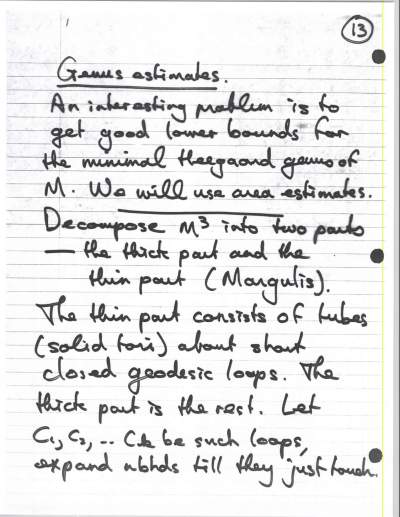 13
Genus estimates.
An interesting problem is to
get good lower bounds for
the minimal Heegaard genus of
M. We will use area estimates.
Decompose M³ into two parts
— the thick part and the
thin part (Margulis).
The thin part consists of tubes
(solid tori) about short
closed geodesic loops. The
thick part is the rest. Let
C₁, C₂, .. Ck be such loops,
expand nbhds till they just touch.